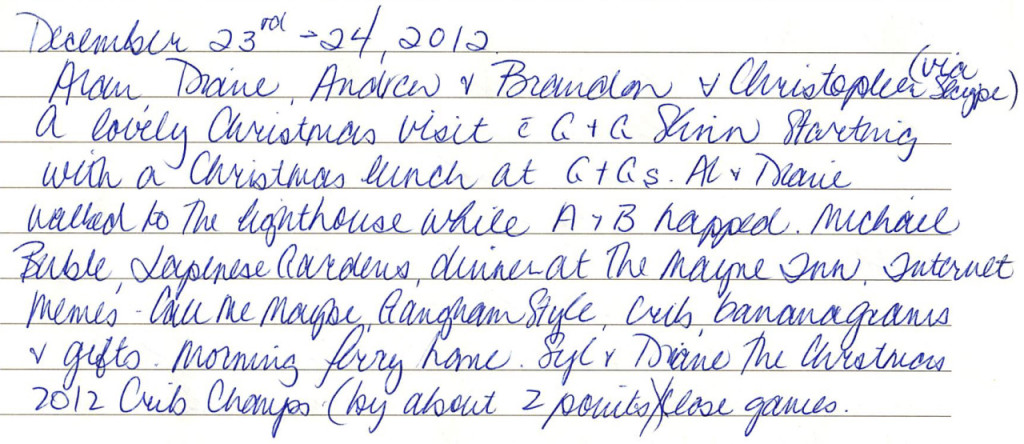 December 23rd - 24, 2012.
Alan, Diane, Andrew & Brandon & Christopher (via Skype)
A lovely Christmas visit c̄ G + G Skinn starting
with a Christmas lunch at G + Gs. Al & Diane
walked to The lighthouse while A & B napped. Michael
Buble, Japenese Gardens, dinner at The Mayne Inn, Internet
Memes - Call Me Maybe, Gangnam Style, Crib, bananagrams
& gifts. Morning ferry home. Syl & Diane The Christmas
2012 Crib Champs (by about 2 points) Close games.